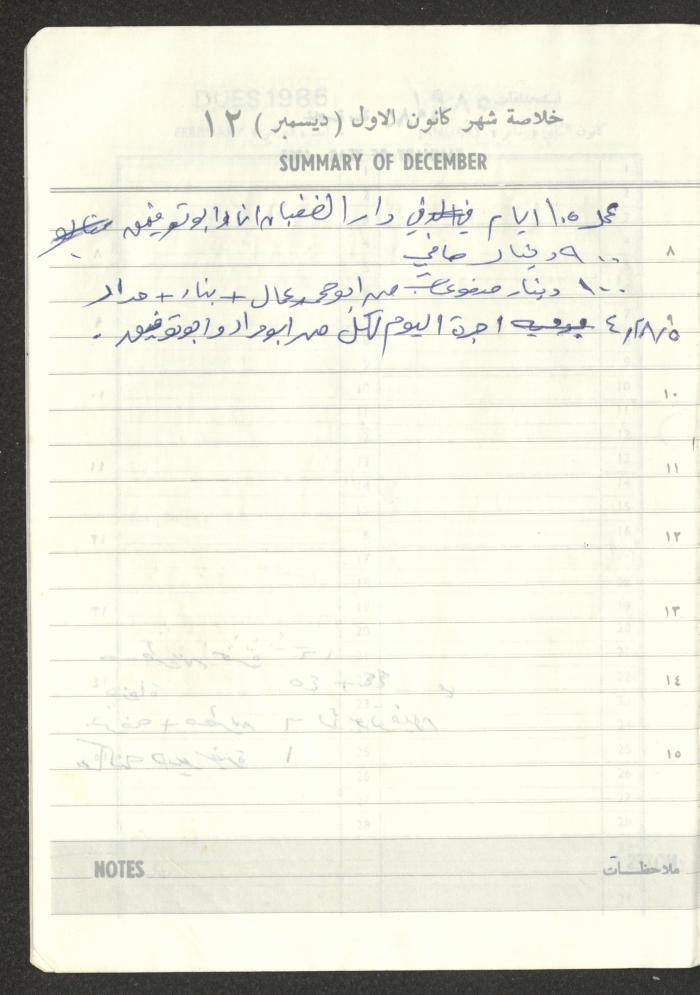 خلاصة شهر كانون الاول (ديسمبر) ١٢
SUMMARY OF DECEMBER
عمل ١٠٥ ايام في دار الغضبان انا وابو توفيق
٩٠٠ دينار صافي
١٠٠ دينار مدفوعات من ابو محمد عمال + بناء + حداد
٤,٢٨٥ يومية اجرة اليوم لكل من ابو مراد وابو توفيق .
٨
١٠
١١
١٢
١٣
١٤
١٥
NOTES ملاحظات